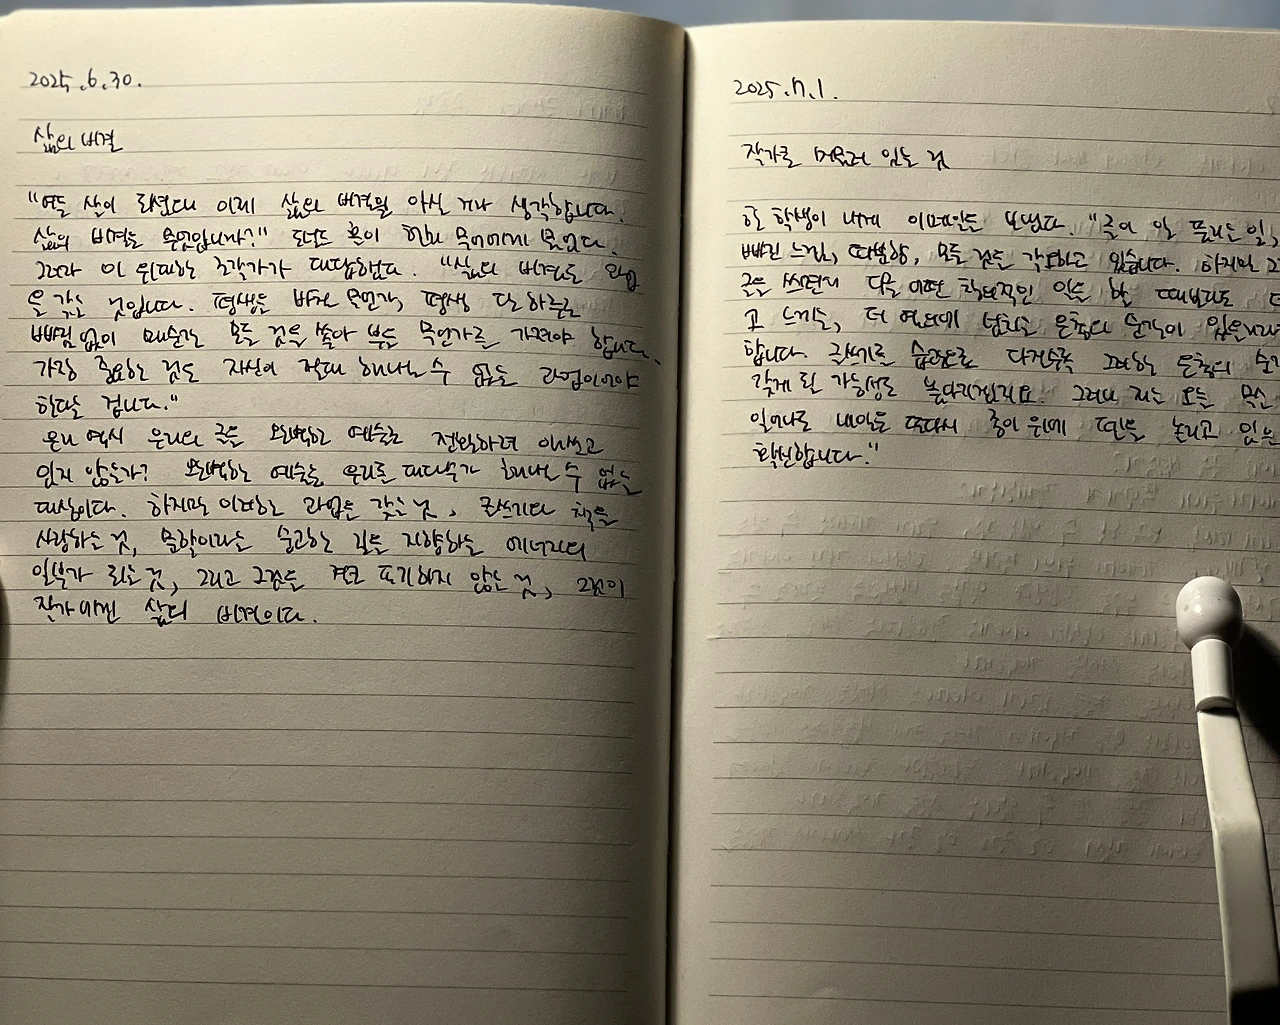 2025.6.30.
삶의 비결
"여든 살이 되셨으니 이제 삶의 비결을 아실 거라 생각합니다.
삶의 비결은 무엇입니까?" 도널드 홀이 헨리 무어에게 물었다.
그러자 이 위대한 조각가가 대답했다. "삶의 비결은 과업
을 갖는 것입니다. 평생을 바칠 무언가, 평생 단 하루도
빠짐없이 매순간 모든 것을 쏟아 붓는 무언가를 가져야 합니다.
가장 중요한 것은 자신이 절대 해내는 수 없는 과업이어야
한다는 겁니다."
우리 역시 우리의 글을 완벽한 예술로 전환하려 애쓰고
있지 않는가? 완벽한 예술은 우리들 대다수가 해내는 수 없는
대상이다. 하지만 이러한 과업을 갖는 것, 글쓰기와 책을
사랑하는 것, 문학이라는 숭고한 길을 지향하는 에너지의
일부가 되는 것, 그리고 그것을 결코 포기하지 않는 것, 그것이
작가에겐 삶의 비결이다.
2025.7.1.
작가로 머물러 있는 것
한 학생이 내게 이메일을 보냈다. "글이 안 풀리는 일,
빠진 느낌, 따분함, 모든 것을 각오하고 있습니다. 하지만
글을 쓰면서 다른 어떤 창의적인 일을 할 때보다도 더
고 느끼는, 더 여러 날고 은총의 순간이
합니다. 글쓰기를 습관으로 다질수록 그러한 은총의 순간
갖게 될 가능성도 높아지겠지요. 그러니 저는 오늘 무슨
일이 내일은 또다시 종이 위에 펜을 올리고 있을
확신합니다."